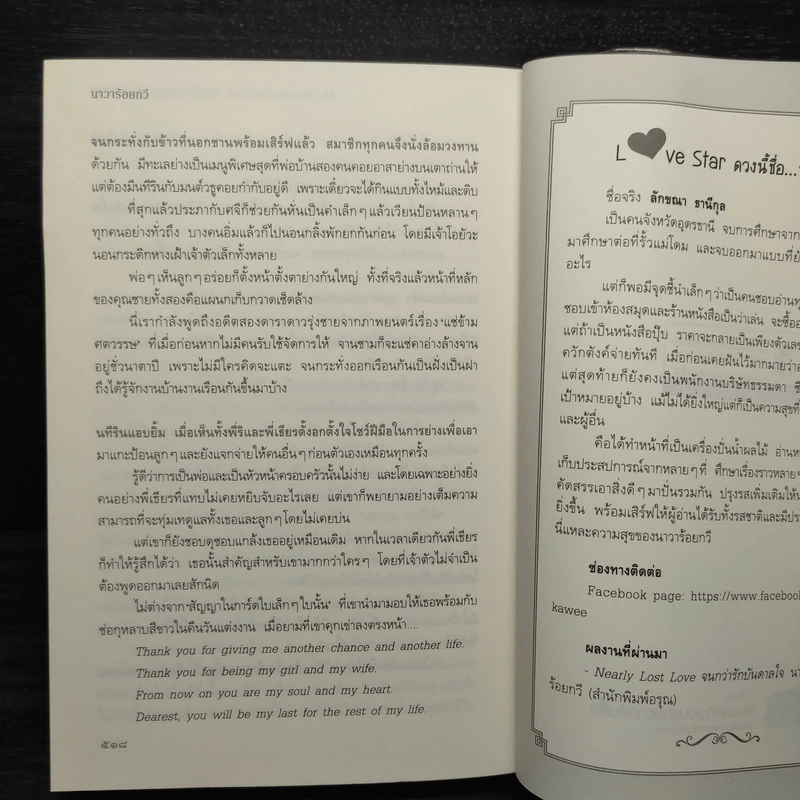 นาวาร้อยกวี
จนกระทั่งกับข้าวที่นอกชานพร้อมเสิร์ฟแล้ว สมาชิกทุกคนจึงนั่งล้อมวงทาน
ด้วยกัน มีทะเลย่างเป็นเมนูพิเศษสุดที่พ่อบ้านสองคนคอยอาสาย่างบนเตาถ่านให้
แต่ต้องมีนทีรินกับมนต์วธูคอยกำกับอยู่ดี เพราะเดี๋ยวจะได้กินแบบทั้งไหม้และดิบ
ที่สุดแล้วประภากับศจีก็ช่วยกันหั่นเป็นคำเล็กๆ แล้วเวียนป้อนหลานๆ
ทุกคนอย่างทั่วถึง บางคนอิ่มแล้วก็ไปนอนกลิ้งพักยกกันก่อน โดยมีเจ้าโอยัวะ
นอนกระดิกหางเฝ้าเจ้าตัวเล็กทั้งหลาย
พ่อๆ เห็นลูกๆ อร่อยก็ตั้งหน้าตั้งตาย่างกันใหญ่ ทั้งที่จริงแล้วหน้าที่หลัก
ของคุณชายทั้งสองคือแผนกเก็บกวาดเช็ดล้าง
นี่เรากำลังพูดถึงอดีตสองดาราดาวรุ่งชายจากภาพยนตร์เรื่อง ‘แช่ข้าม
ศตวรรษ’ ที่เมื่อก่อนหากไม่มีคนรับใช้จัดการให้ จานชามก็จะแช่คาอ่างล้างจาน
อยู่ชั่วนาตาปี เพราะไม่มีใครคิดจะแตะ จนกระทั่งออกเรือนกันเป็นฝั่งเป็นฝา
ถึงได้รู้จักงานบ้านงานเรือนกันขึ้นมาบ้าง
นทีรินแอบยิ้ม เมื่อเห็นทั้งพี่ริและพี่เธียรตั้งอกตั้งใจโชว์ฝีมือในการย่างเพื่อเอา
มาแกะป้อนลูกๆ และยังแจกจ่ายให้คนอื่นๆ ก่อนตัวเองเหมือนทุกครั้ง
รู้ดีว่าการเป็นพ่อและเป็นหัวหน้าครอบครัวนั้นไม่ง่าย และโดยเฉพาะอย่างยิ่ง
คนอย่างพี่เธียรที่แทบไม่เคยหยิบจับอะไรเลย แต่เขาก็พยายามอย่างเต็มความ
สามารถที่จะทุ่มเทดูแลทั้งเธอและลูกๆ โดยไม่เคยบ่น
แต่เขาก็ยังชอบดุชอบแกล้งเธออยู่เหมือนเดิม หากในเวลาเดียวกันพี่เธียร
ก็ทำให้รู้สึกได้ว่า เธอนั้นสำคัญสำหรับเขามากกว่าใครๆ โดยที่เจ้าตัวไม่จำเป็น
ต้องพูดออกมาเลยสักนิด
ไม่ต่างจาก ‘สัญญาในการ์ดใบเล็กๆ ใบนั้น’ ที่เขานำมามอบให้เธอพร้อมกับ
ช่อกุหลาบสีขาวในคืนวันแต่งงาน เมื่อยามที่เขาคุกเข่าลงตรงหน้า....
Thank you for giving me another chance and another life.
Thank you for being my girl and my wife.
From now on you are my soul and my heart.
Dearest, you will be my last for the rest of my life.
๕๑๘
L ve Star ดวงนี้ชื่อ...
ชื่อจริง ลักขณา ธานีกุล
เป็นคนจังหวัดอุดรธานี จบการศึกษาจาก
มาศึกษาต่อที่รั้วแม่โดม และจบออกมาแบบที่ยัง
อะไร
แต่ก็พอมีจุดชี้นำเล็กๆ ว่าเป็นคนชอบอ่าน
ชอบเข้าห้องสมุดและร้านหนังสือเป็นว่าเล่น จะซื้อ
แต่ถ้าเป็นหนังสือปุ๊บ ราคาจะกลายเป็นเพียงตัวเลข
ควักตังค์จ่ายทันที เมื่อก่อนเคยฝันไว้มากมายว่า
แต่สุดท้ายก็ยังคงเป็นพนักงานบริษัทธรรมดา
เป้าหมายอยู่บ้าง แม้ไม่ได้ยิ่งใหญ่แต่ก็เป็นความสุขที่
และผู้อื่น
คือได้ทำหน้าที่เป็นเครื่องปั่นน้ำผลไม้ อ่าน
เก็บประสบการณ์จากหลายๆ ที่ ศึกษาเรื่องราวหลายๆ
คัดสรรเอาสิ่งดีๆ มาปั่นรวมกัน ปรุงรสเพิ่มเติมให้
ยิ่งขึ้น พร้อมเสิร์ฟให้ผู้อ่านได้รับทั้งรสชาติและมี
นี่แหละความสุขของนาวาร้อยกวี
ช่องทางติดต่อ
Facebook page: https://www.facebook
kawee
ผลงานที่ผ่านมา
- Nearly Lost Love จนกว่ารักบันดาลใจ
ร้อยกวี (สำนักพิมพ์อรุณ)